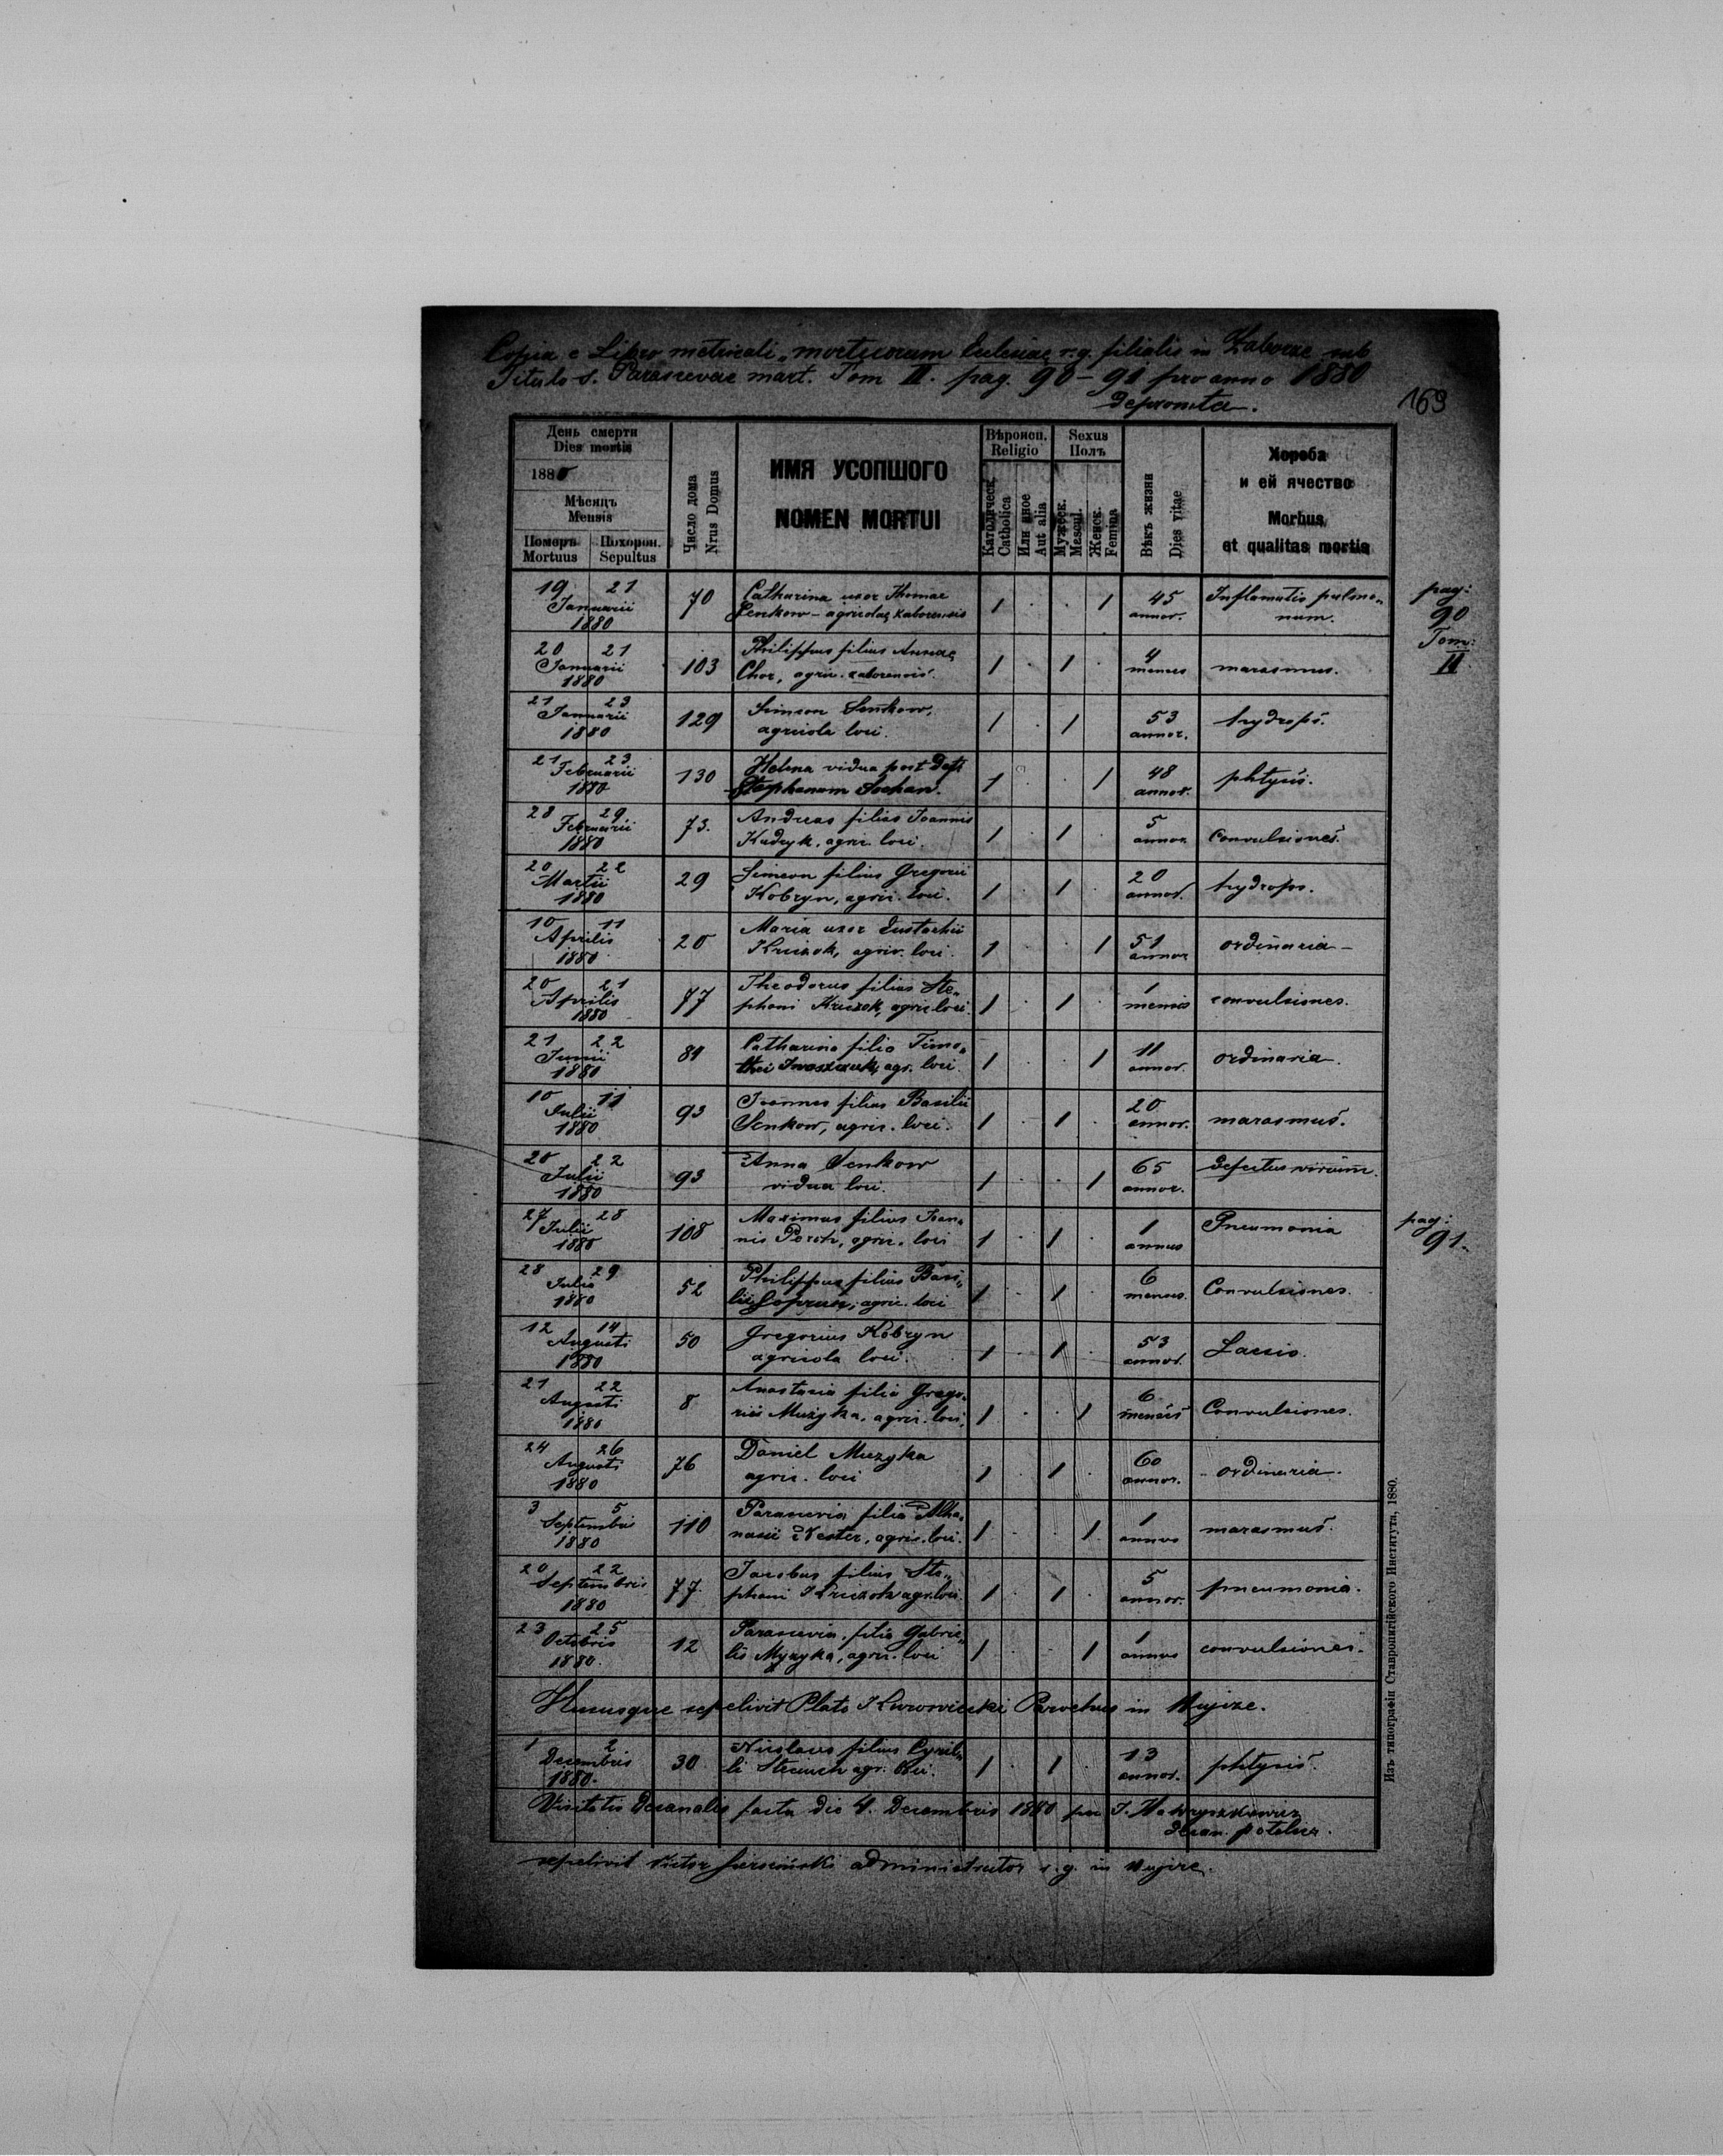 Copia e Libro metricali „mortuorum Ecclesiae r.g. filialis in Zaborze sub
Titulo S. Parascevae mart. Tom II. pag. 90–91 pro anno 1880
depromta.
169
День смерти
Dies mortis
1880
Мѣсяцъ
Mensis
Померъ Mortuus
Похорон. Sepultus
Число дома
Nrus Domus
ИМЯ УСОПШОГО
NOMEN MORTUI
Вѣроисп.
Religio
Католическ.
Catholica
Или иное
Aut alia
Sexus
Полъ
Мужеск.
Mascul.
Женск.
Femina
Вѣкъ жизни
Dies vitae
Хороба
и ей ячество
Morbus
et qualitas mortis
19 21 Januarii 1880 70 Catharina uxor Thomae
Senkow – agricolae zaborensis 1 . . 1 45 annor. Inflamatio pulmo„
num.
pag: 90 Tom: II
20 21 Januarii 1880 103 Philippus filius Annae
Chor, agric. zaborensis. 1 . 1 . 4 menses marasmus.
21 23 Januarii 1880 129 Simeon Senkow,
agricola loci. 1 . 1 53 annor. hydrops.
21 23 Februarii 1880 130 Helena vidua post def
Stephanum Sochan. 1 . . 1 48 annor. phtysis.
28 29 Februarii 1880 73. Andreas filius Joannis
Kudryk, agric. loci. 1 . 1 . 5 annor. convulsiones.
20 22 Martii 1880 29 Simeon filius Gregorii
Kobryn, agric. loci. 1 . 1 . 20 annor. hydrops.
10 11 Aprilis 1880 20 Maria uxor Eustachii
Kruczok, agric. loci. 1 . . 1 51 annor ordinaria –
20 21 Aprilis 1880 77 Theodorus filius Ste„
phani Kruczok, agric. loci. 1 . 1 . 1 mensis convulsiones.
21 22 Junii 1880 81 Catharina filia Timo„
thei Iwaszczuk, agr. loci. 1 . . 1 11 annor. ordinaria.
10 11 Julii 1880 93 Joannes filius Basilii
Senkow, agric. loci. 1 . 1 . 20 annor. marasmus.
20 22 Julii 1880 93 Anna Senkow
vidua loci. 1 . . 1 65 annor. defectus virium.
27 28 Julii 1880 108 Maximus filius Joan„
nis Porch, agric. loci 1 . 1 . 1 annus Pneumonia
pag: 91.
28 29 Julii 1880 52 Philippus filius Basi„
lii agric. loci 1 . 1 . 6 menses. Convulsiones.
12 14 Augusti 1880 50 Gregorius Kobryn
agricola loci. 1 . 1 . 53 annor. Laesio.
21 22 Augusti 1880 8 Anastasia filia Grego„
rii Muzyka, agric. loci. 1 . . 1 6 menses Convulsiones.
24 26 Augusti 1880 76 Daniel Muzyka
agric. loci 1 . 1 . 60 annor. ordinaria.
3 5 Septembris 1880 110 Parascevia filia Atha„
nasii Nester, agric. loci. 1 . . 1 1 annus marasmus.
20 22 Septembris 1880 77. Jacobus filius Ste„
phani Kruczok agr. loci. 1 . 1 . 5 annor. pneumonia.
23 25 Octobris 1880. 12 Parascevia, filia Gabrie„
lis Myzyka, agric. loci 1 . . 1 1 annus convulsiones.
Hucusque sepelivit Plato Kurowicki Parochus in Ulujcze.
1 2 Decembris 1880. 30 Nicolaus filius Cyril„
li agr. loci. 1 . 1 . 13 annor. phtysis.
Visitatio Decanalis facta die 4. Decembris 1880 per J.
Decan. potelicz.
sepelivit Victor administrator r. g. in Ulujcze.
Изъ типографіи Ставропигійского Института, 1880.